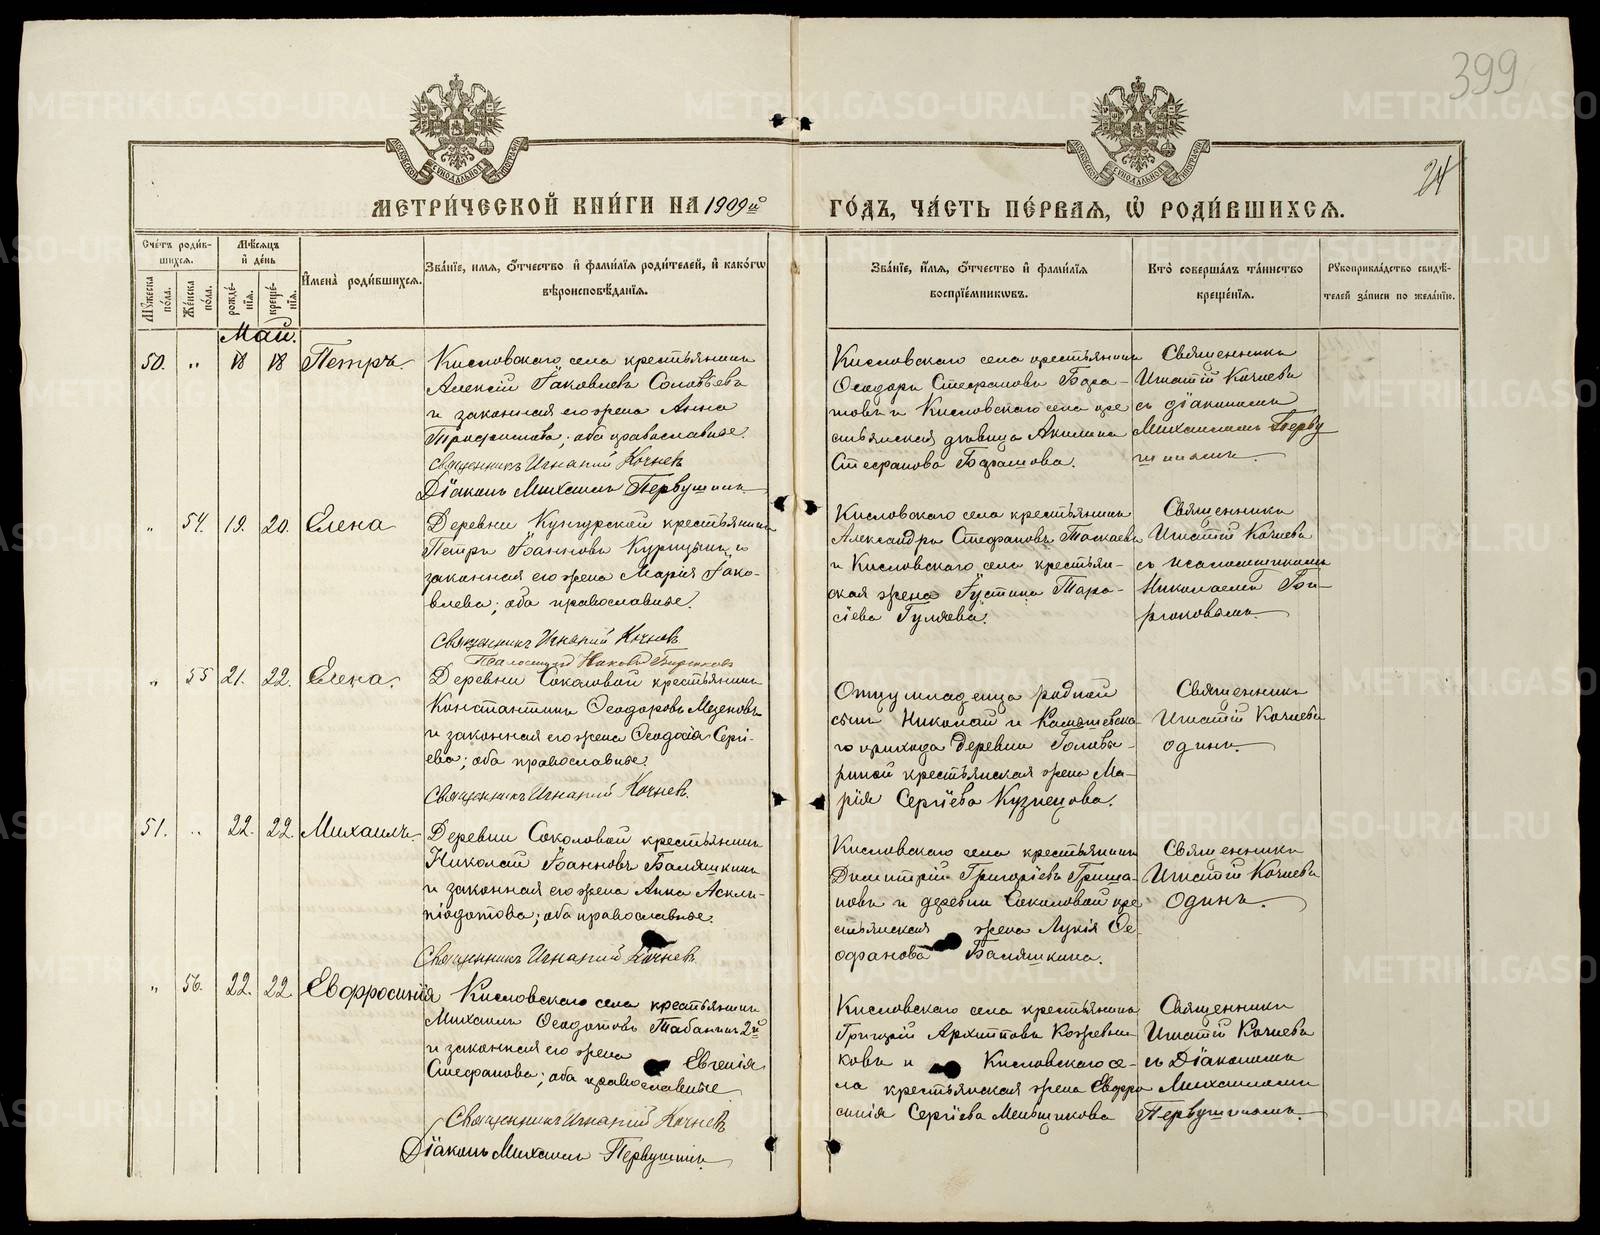 399
24
МЕТРИ́ЧЕСКОЙ КНИ́ГИ НА 1909й ГО́ДЪ, ЧА́СТЬ ПЕ́РВАЯ, Ѡ҆ РОДИ́ВШИХСЯ.
Сче́тъ роди́в-
шихся.
Мꙋ́жеска по́ла.
Же́нска по́ла.
Мѣ́сяцъ
и҆ де́нь
рожде́-
нїя.
креще́-
нїя.
И҆мена̀ роди́вшихся.
Зва́нїе, и҆́мя, ѻ҆́тчество и҆ фами́лїя роди́телей, и҆ како́гѡ
вѣроисповѣ́данїя.
Зва́нїе, и҆́мя, ѻ҆́тчество и҆ фами́лїя
воспрїе́мниковъ.
Кто̀ соверша́лъ та́инство
креще́нїя.
Рꙋкоприкла́дство свидѣ́-
телей за́писи по жела́нїю.
Май.
50. „ 18 18 Петръ.
Кисловскаго села крестьянинъ
Алексій Іаковлевъ Соловьевъ
и законная его жена Анна
Трофимова; оба православные.
Священникъ Игнатій Кочневъ
Діаконъ Михаилъ Первушинъ.
Кисловскаго села крестьянинъ
Ѳеодоръ Стефановъ
и Кисловскаго села кре
стьянская дѣвица Акилина
Стефанова
Священникъ
Игнатій Кочневъ
съ діакономъ
Михаиломъ Перву
шинымъ.
„ 54. 19. 20. Елена
Деревни Кунгурской крестьянинъ
Петръ Іоанновъ Курицынъ и
законная его жена Марія Іако-
влева; оба православные.
Священникъ Игнатій Кочневъ
Кисловскаго села крестьянинъ
Александръ Стефановъ Таскаевъ
и Кисловскаго села крестьян-
ская жена Іустина Тара-
сіева Гуляева.
Священникъ
Игнатій Кочневъ
съ псаломщикомъ
Николаемъ
„ 55 21. 22. Елена.
Деревни Соколовой крестьянинъ
Константинъ Ѳеодоровъ Мезеновъ
и законная его жена Ѳеодосія Сергі-
ева; оба православные.
Священникъ Игнатій Кочневъ.
Отцу младенца родной
сынъ Николай и Камышевска-
го прихода деревни Головы-
риной крестьянская жена Ма-
рія Сергіева Кузнецова.
Священникъ
Игнатій Кочневъ
одинъ.
51. „ 22. 22. Михаилъ.
Деревни Соколовой крестьянинъ
Николай Іоанновъ Баляшкинъ
и законная его жена Анна Аскли-
піодотова; оба православные.
Священникъ Игнатій Кочневъ.
Кисловскаго села крестьянинъ
Димитрій Григоріевъ Гриша-
новъ и деревни Соколовой кре
стьянская жена Лукія Ѳе-
офанова Баляшкина.
Священникъ
Игнатій Кочневъ
одинъ.
„ 56. 22. 22. Евфросинія
Кисловскаго села крестьянинъ
Михаилъ Ѳеодотовъ Табатчи 2й
и законная его жена Евгенія
Стефанова; оба православные
Священникъ Игнатій Кочневъ
Діаконъ Михаилъ Первушинъ.
Кисловскаго села крестьянинъ
Григорій Архиповъ Кожевни
ковъ и Кисловскаго се-
ла крестьянская жена Евфро
синія Сергіева Меньшикова
Священникъ
Игнатій Кочневъ
съ Діакономъ
Михаиломъ
Первушинымъ.